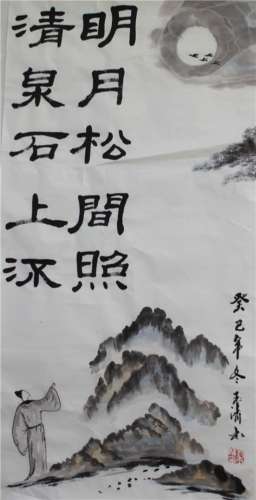 明月松間照
清泉石上流
癸巳年冬王清木